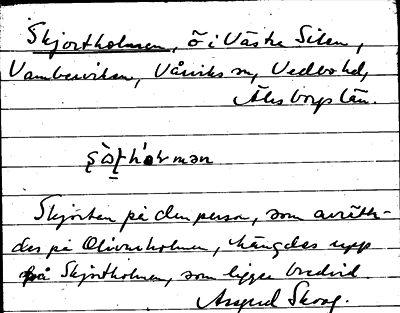 Skjortholmen, ö i Västra Silen,
Vambersviken, Vårviks sn, Vedbo hd,
Älvsborgs län.
Skjortan på den person, som avrätta-
des på Olivmholmen, hängdes upp
på Skjortholmen, som ligger bredvid.
Astrid Skoog.